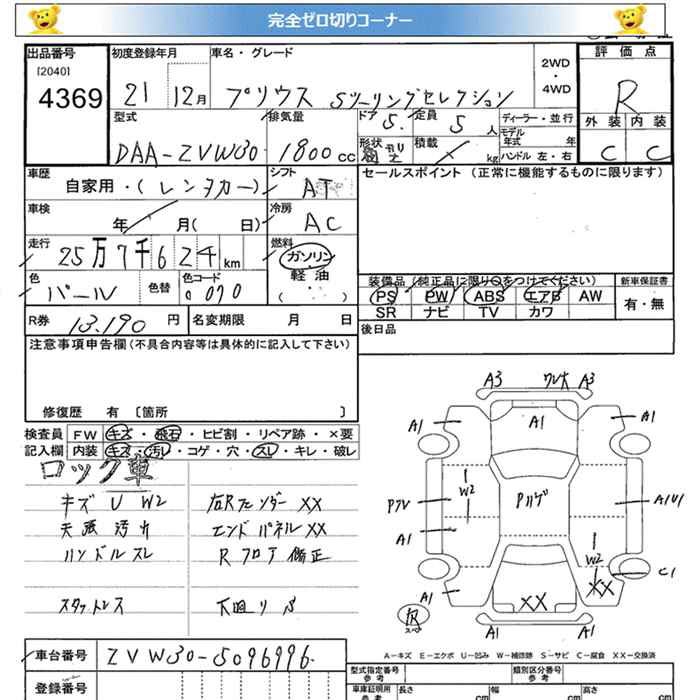 完全ゼロ切りコーナー
出品番号 初度登録年月 車名・グレード 評価点
[2040]
4369 21 12月 プリウス Sツーリングセレクション 2WD・4WD R
型式 排気量 ドア 5 定員 5人 ディーラー・並行 外装 内装
DAA-ZVW30 1800cc 形状 積載 kg モデル年式 年 ハンドル 左・右 C C
車歴 シフト セールスポイント (正常に機能するものに限ります)
自家用・(レンタカー) AT
車検 冷房
年 月( 日) AC
走行 燃料
25万7千624km ガソリン
軽油
( )
色 色替 色コード 装備品 (純正品に限り○をつけてください) 新車保証書
パール 070 PS PW ABS エアB AW 有・無
SR ナビ TV カワ
R券 13,190円 名変期限 月 日 後日品
注意事項申告欄(不具合内容等は具体的に記入して下さい)
修復歴 有 〔箇所 〕
検査員 FW キズ・飛石・ヒビ割・リペア跡・×要
記入欄 内装 キズ・汚レ・コゲ・穴・スレ・キレ・破レ
ロック車
キズ U W2 右Rフェンダー XX
天張汚れ エンドパネル XX
ハンドルスレ Rフロア修正
スタットレス 下回りS
A3 ワレ大 A3
A1 A1 A1
W2 PアV Pハゲ A1U1
A1 W2
C1
A1 XX XX
A1 A1
A-キズ E-エクボ U-凹み W-補修跡 S-サビ C-腐食 XX-交換済
車台番号 ZVW30-5096996
登録番号
型式指定番号 参考 類別区分番号 参考
車庫証明用 参考 長さ cm 幅 cm 高さ cm